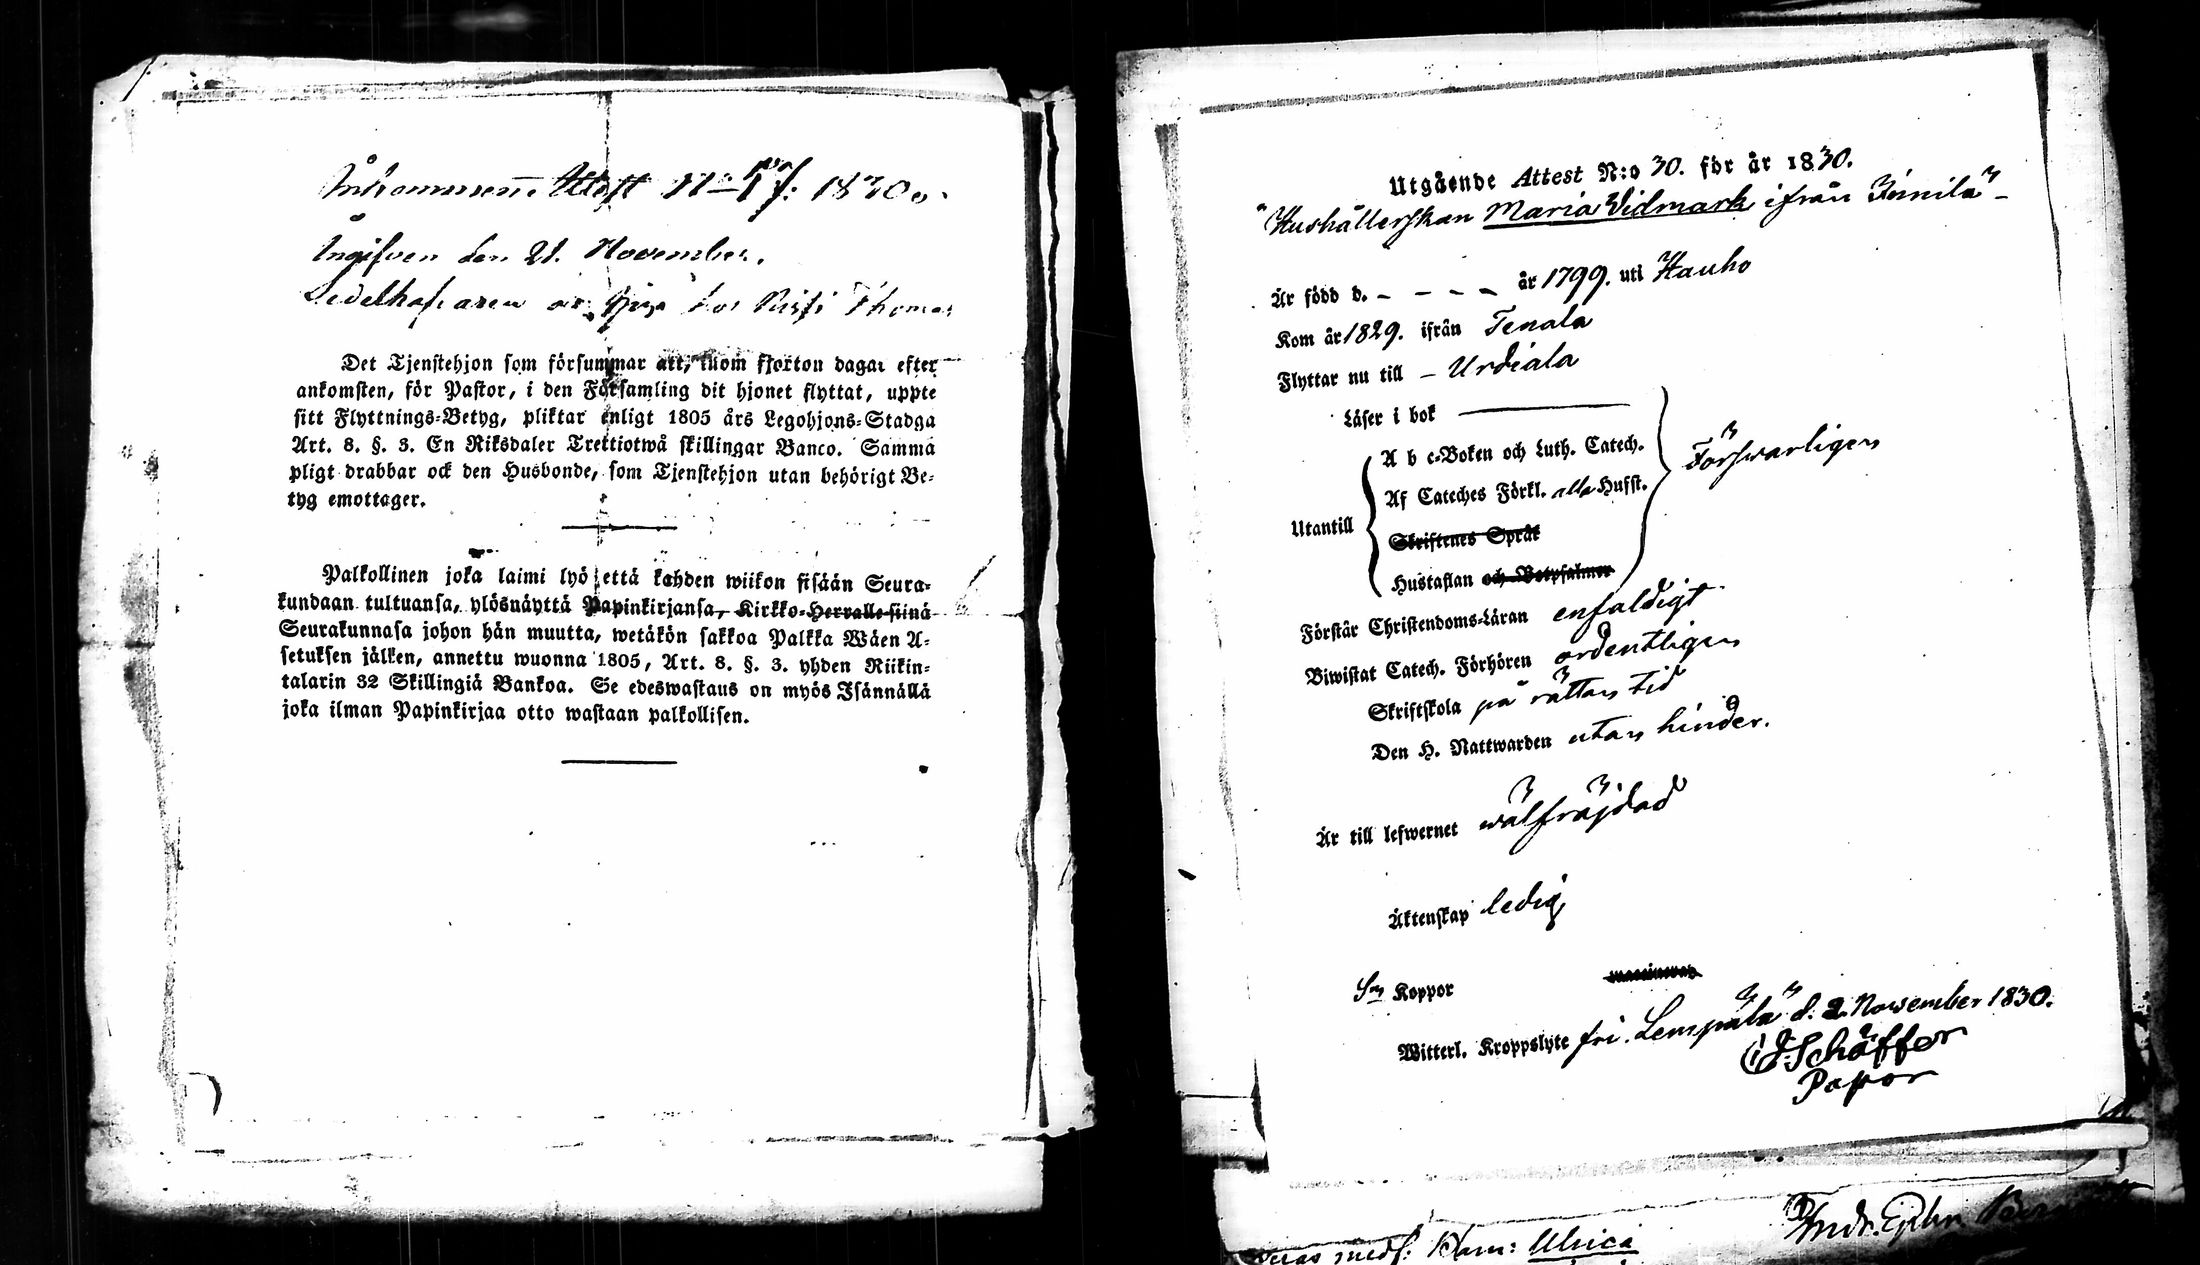 Inkommen Attest N:o 17. 1830.
Ingifven den 21. November.
Sedelhafvaren är hos Thomas
Det Tjenstehjon som försummar att, inom fjorton dagar efter
ankomsten, för Pastor, i den Församling dit hjonet flyttat, uppte
sitt Flyttnings-Betyg, pliktar enligt 1805 års Legohjons-Stadga
Art. 8. §. 3. En Riksdaler Trettiotwå skillingar Banco. Samma
pligt drabbar ock den Husbonde, som Tjenstehjon utan behörigt Be-
tyg emottager.
Palkollinen joka laimi lyö että kahden wiikon sisään Seura-
kundaan tultuansa, ylösnäyttä Papinkirjansa, Kirkko-Herralle siinä
Seurakunnasa johon hän muutta, wetäkön sakkoa Palkka Wäen A-
setuksen jälken, annettu wuonna 1805, Art. 8. §. 3. yhden Riikin-
talarin 32 Skillingiä Bankoa. Se edeswastaus on myös Isännällä
joka ilman Papinkirjaa otto wastaan palkollisen.
Utgående Attest N:o 30. för år 1830.
Hushållerskan Maria Vidmark ifrån
Är född d. - - - - år 1799. uti Hauho
Kom år 1829. ifrån Tenala
Flyttar nu till - Urdiala
Läser i bok
Utantill
A b c-Boken och Luth. Catech.
Af Cateches Förkl. alla Hufst.
Skriftenes Språk
Hustaflan och Botpsalmer
Försvarligen
Förstår Christendoms-Läran enfaldigt
Biwistat Catech. Förhören ordentligen
Skriftskola på rättan tid
Den H. Nattwarden utan hinder.
Är till lefwernet wälfräjdad
Äktenskap ledig
Koppor
Witterl. Kroppslyte fri. Lempälä d. 2. November 1830.
Schäffer
Pastor
medf. Barn: Ulrica